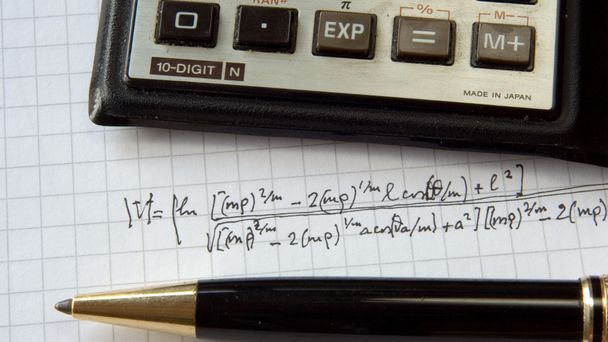 π % M−
0 · EXP = M+
10-DIGIT N
MADE IN JAPAN
|V|= ln [(mρ)^2/m − 2(mρ)^1/m ℓ cos(θ/m) + ℓ²]
√[(mρ)^2/m − 2(mρ)^1/m a cos( a/m) + a²][(mρ)^2/m − 2(mρ)